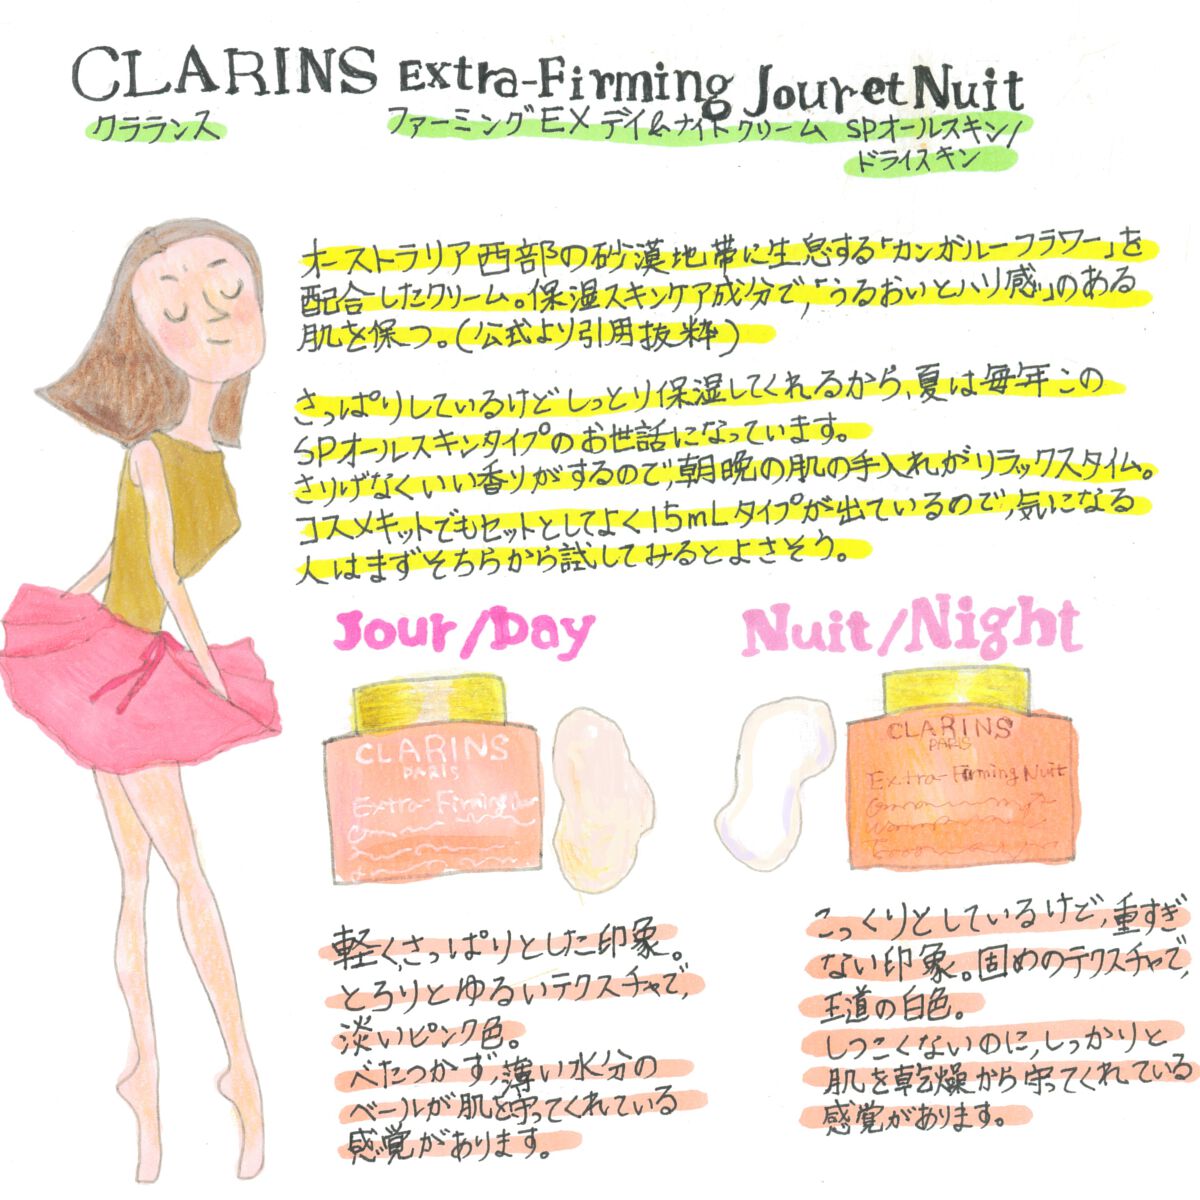 CLARINS Extra-Firming Jour et Nuit
クラランス ファーミングEX デイ&ナイトクリーム SPオールスキン/
ドライスキン
オーストラリア西部の砂漠地帯に生息する「カンガルーフラワー」を
配合したクリーム。保湿スキンケア成分で、「うるおいとハリ感」のある
肌を保つ。(公式より引用抜粋)
さっぱりしているけどしっとり保湿してくれるから、夏は毎年この
SPオールスキンタイプのお世話になっています。
さりげなくいい香りがするので、朝晩の肌の手入れがリラックスタイム。
コスメキットでもセットとしてよく15mLタイプが出ているので、気になる
人はまずそちらから試してみるとよさそう。
Jour/Day
CLARINS
PARIS
Extra-Firming
軽く、さっぱりとした印象。
とろりとゆるいテクスチャで、
淡いピンク色。
べたつかず、薄い水分の
ベールが肌を守ってくれている
感覚があります。
Nuit/Night
CLARINS
PARIS
Extra-Firming Nuit
こっくりとしているけど、重すぎ
ない印象。固めのテクスチャで、
王道の白色。
しつこくないのに、しっかりと
肌を乾燥から守ってくれている
感覚があります。